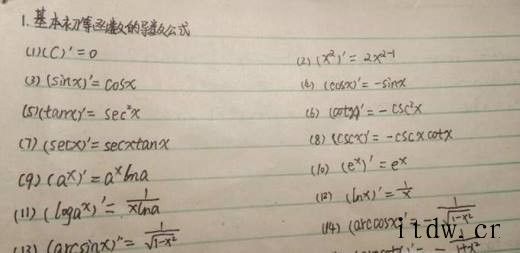 1. 基本初等函数的导数公式
(1) (C)' = 0
(2) (x²)' = 2x²⁻¹
(3) (sinx)' = cosx
(4) (cosx)' = -sinx
(5) (tanx)' = sec²x
(6) (cotx)' = -csc²x
(7) (secx)' = secxtanx
(8) (cscx)' = -cscxcotx
(9) (aˣ)' = aˣlna
(10) (eˣ)' = eˣ
(11) (logaˣ)' = 1/xlna
(12) (lnx)' = 1/x
(13) (arcsinx)' = 1/√1-x²
(14) (arccosx)' = -1/√1-x²
itdw.cn